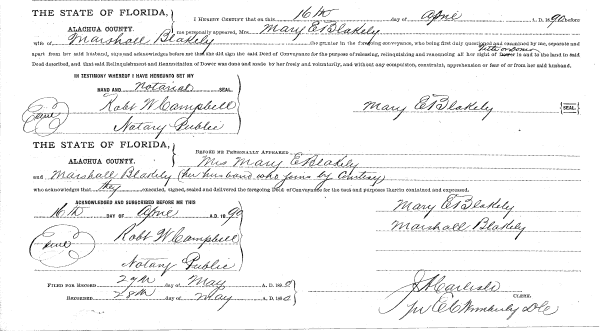 THE STATE OF FLORIDA,
ALACHUA COUNTY.
I HEREBY CERTIFY that on this 16th day of April A. D. 1890 before
me personally appeared, Mrs. Mary E Blakely
wife of Marshall Blakely the grantor in the foregoing conveyance, who being first duly questioned and examined by me, separate and
apart from her said husband, says and acknowledges before me that she did sign the said Deed of Conveyance for the purpose of releasing, relinquishing and renouncing all her right of Dower in and to the land in said
Title or Dower
Deed described, and that said Relinquishment and Renunciation of Dower was done and made by her freely and voluntarily, and without any compulsion, constraint, apprehension or fear of or from her said husband.
IN TESTIMONY WHEREOF I HAVE HEREUNTO SET MY
HAND AND notarial SEAL.
Robt W Campbell
Seal
Notary Public
Mary E Blakely SEAL
THE STATE OF FLORIDA,
ALACHUA COUNTY.
BEFORE ME PERSONALLY APPEARED
Mrs Mary E Blakely
and Marshall Blakely (her husband who joins by Courtesy)
who acknowledges that they executed, signed, sealed and delivered the foregoing Deed of Conveyance for the uses and purposes therein contained and expressed.
ACKNOWLEDGED AND SUBSCRIBED BEFORE ME THIS
16th DAY OF April A. D. 1890
Mary E Blakely
Marshall Blakely
Robt W Campbell
Seal
Notary Public
FILED FOR RECORD 27th day of May A. D. 1890
RECORDED 28th day of May A. D. 1890
J A Carlisle CLERK.
per E C Wimberly D C